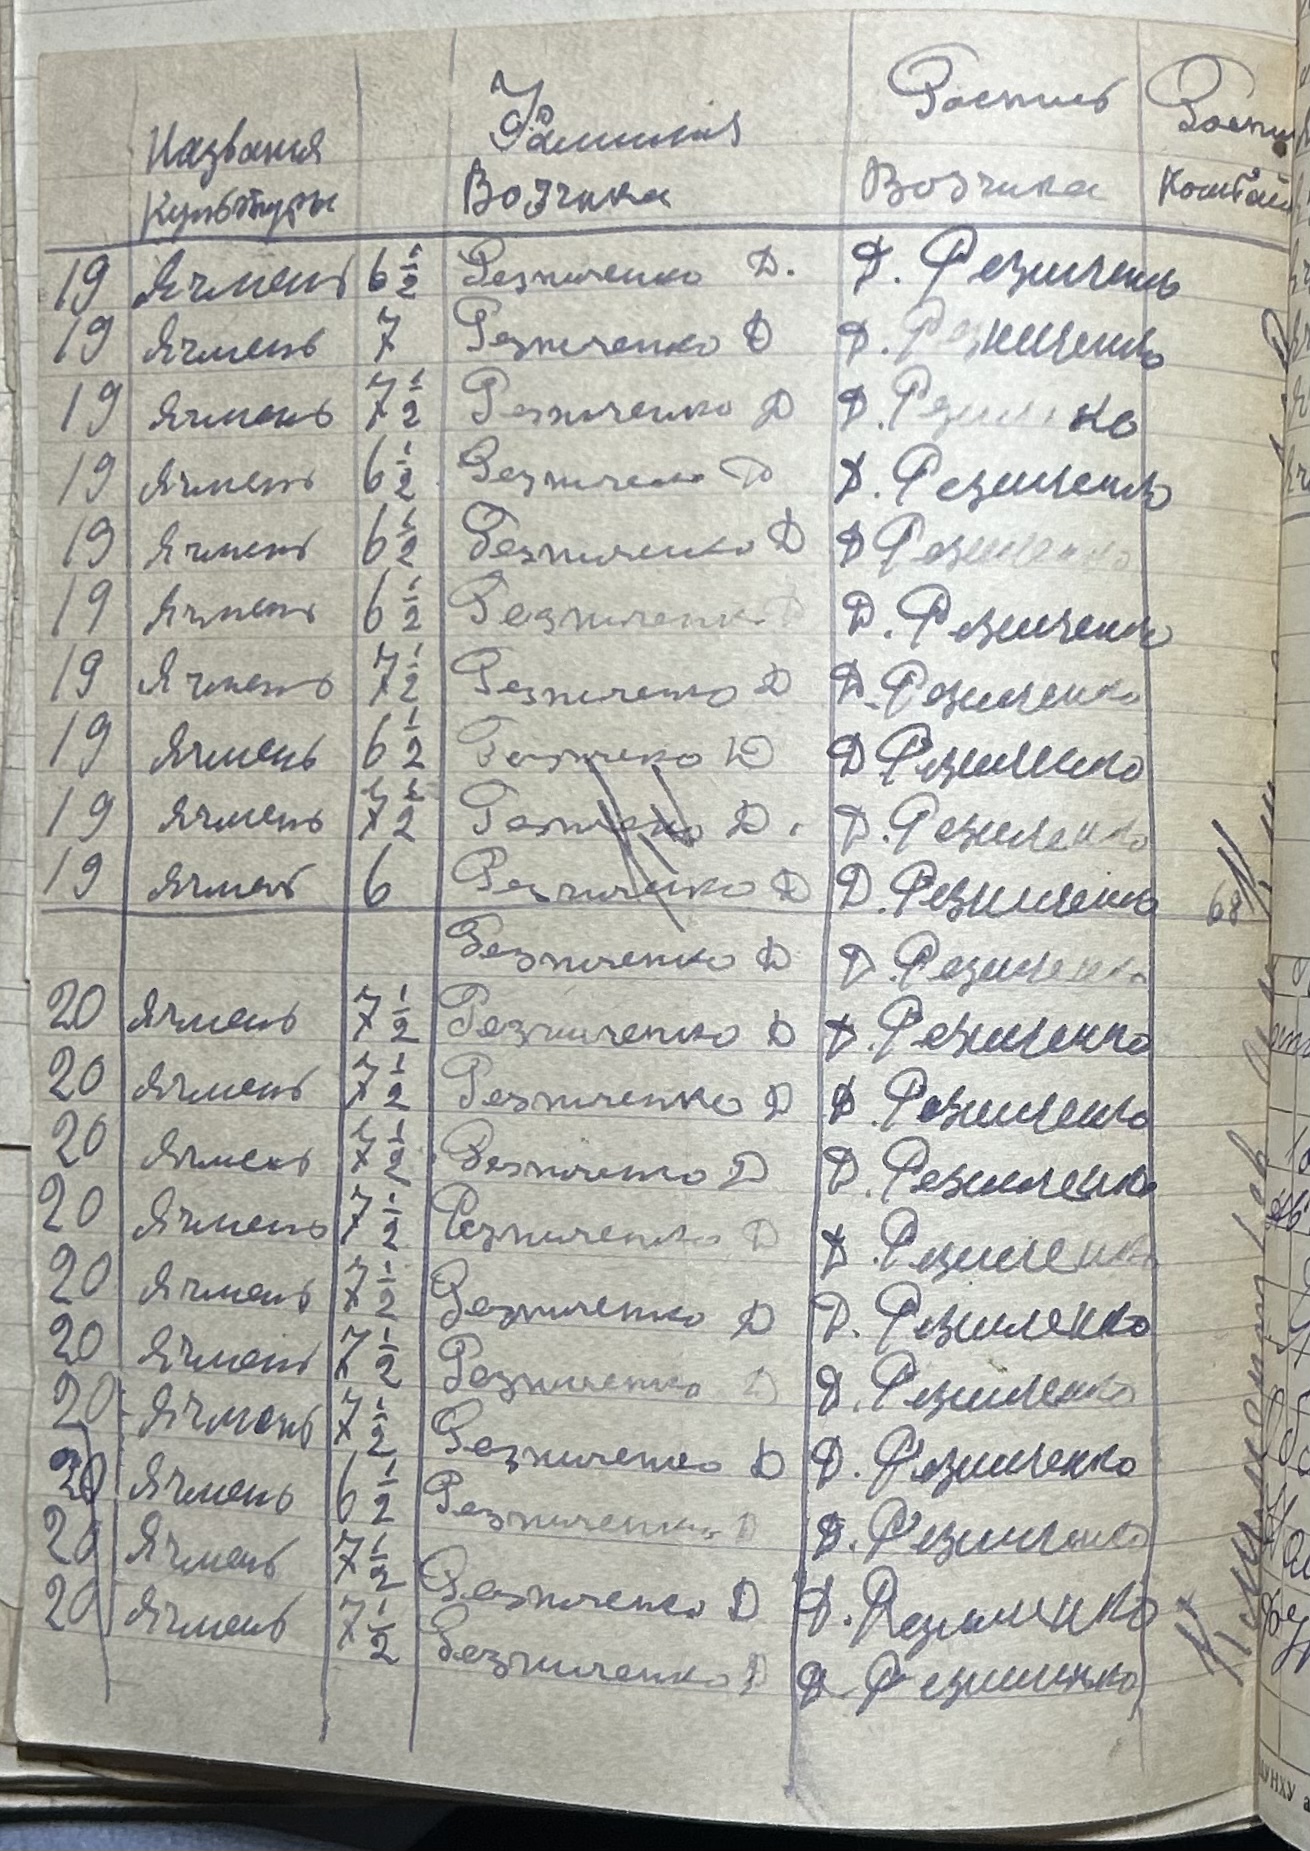 Названия Фамилия Роспись Роспи
Культуры Возчика Возчика Комбай
19 Ячмень 6 1/2 Резниченко Д. Д. Резниченко
19 Ячмень 7 Резниченко Д Д. Резниченко
19 Ячмень 7 1/2 Резниченко Д Д. Резниченко
19 Ячмень 6 1/2 Резниченко Д Д. Резниченко
19 Ячмень 6 1/2 Резниченко Д Д Резниченко
19 Ячмень 6 1/2 Резниченко Д Д. Резниченко
19 Ячмень 7 1/2 Резниченко Д Д. Резниченко
19 Ячмень 6 1/2 Резниченко Д Д Резниченко
19 Ячмень 7 1/2 Резниченко Д. Д. Резниченко
19 Ячмень 6 Резниченко Д Д. Резниченко 68
Резниченко Д Д. Резниченко
20 Ячмень 7 1/2 Резниченко Д Д. Резниченко
20 Ячмень 7 1/2 Резниченко Д Д. Резниченко
20 Ячмень 7 1/2 Резниченко Д Д. Резниченко
20 Ячмень 7 1/2 Резниченко Д Д. Резниченко
20 Ячмень 7 1/2 Резниченко Д Д. Резниченко
20 Ячмень 7 1/2 Резниченко Д Д. Резниченко
20 Ячмень 7 1/2 Резниченко Д Д. Резниченко
20 Ячмень 6 1/2 Резниченко Д Д. Резниченко
20 Ячмень 7 1/2 Резниченко Д Д. Резниченко
20 Ячмень 7 1/2 Резниченко Д Д. Резниченко